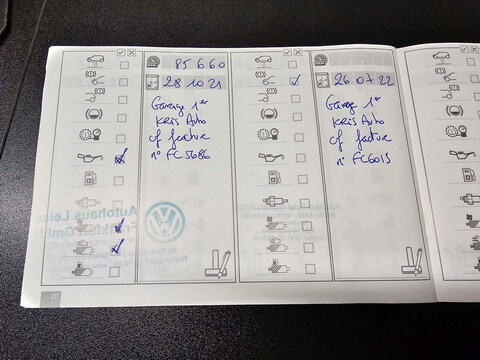 85660
28 10 21
Garage 1er
KRIS Auto
cf facture
n° FC5686
26 07 22
Garage 1er
KRIS Auto
cf facture
n° FC6015
20